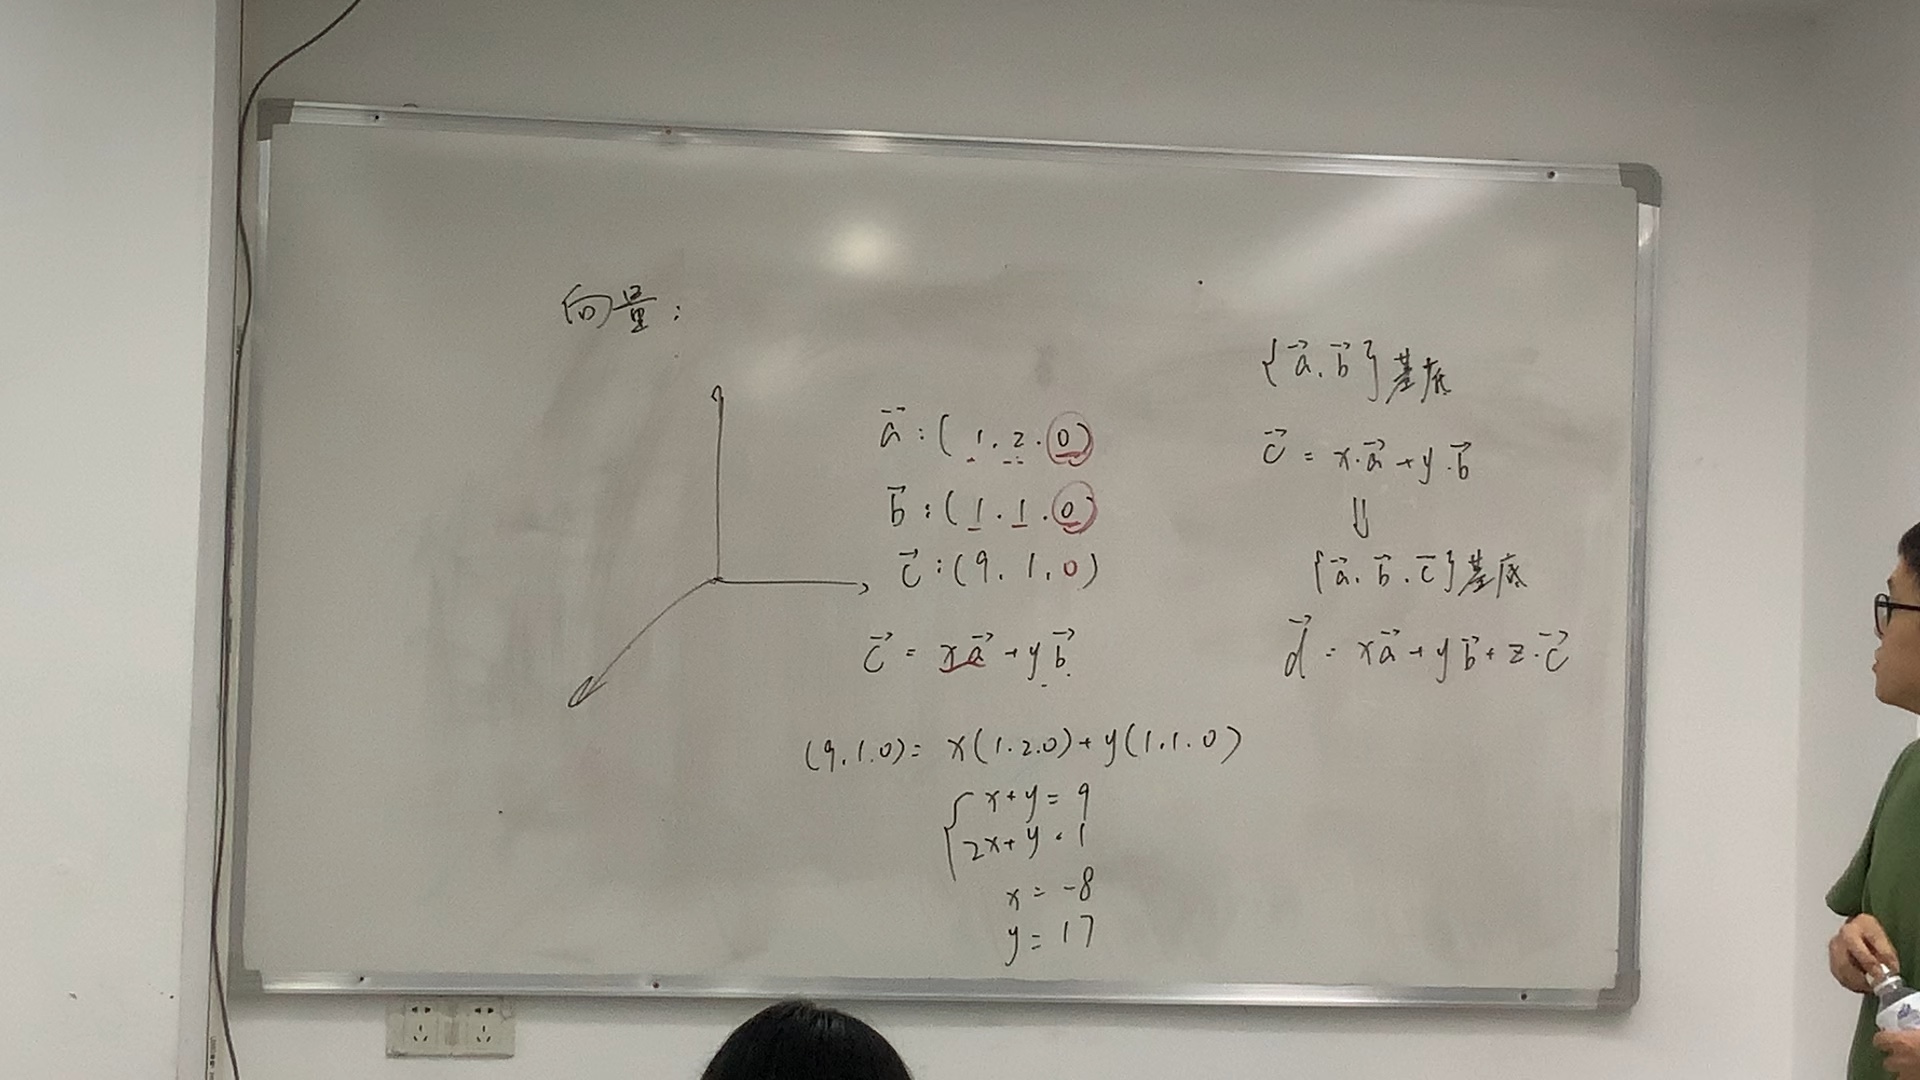 向量:
a⃗:(1.2.0)
b⃗:(1.1.0)
c⃗:(9.1.0)
c⃗=xa⃗+yb⃗.
(9.1.0)=x(1.2.0)+y(1.1.0)
x+y=9
2x+y=1
x=-8
y=17
{a⃗.b⃗}基底
c⃗=x.a⃗+y.b⃗
⇓
{a⃗.b⃗.c⃗}基底
d⃗=xa⃗+yb⃗+z.c⃗